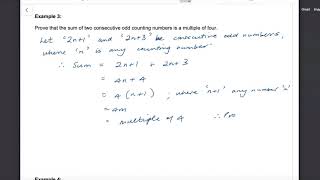 Example 3:
Prove that the sum of two consecutive odd counting numbers is a multiple of four.
Let '2n+1' and '2n+3' be consecutive odd numbers,
where 'n' is any counting number.
∴ Sum = 2n+1 + 2n+3
= 4n + 4
= 4 (n+1) ; where 'n+1' any number 'm'
= 4m
= multiple of 4 ∴ Pro
Example 4: